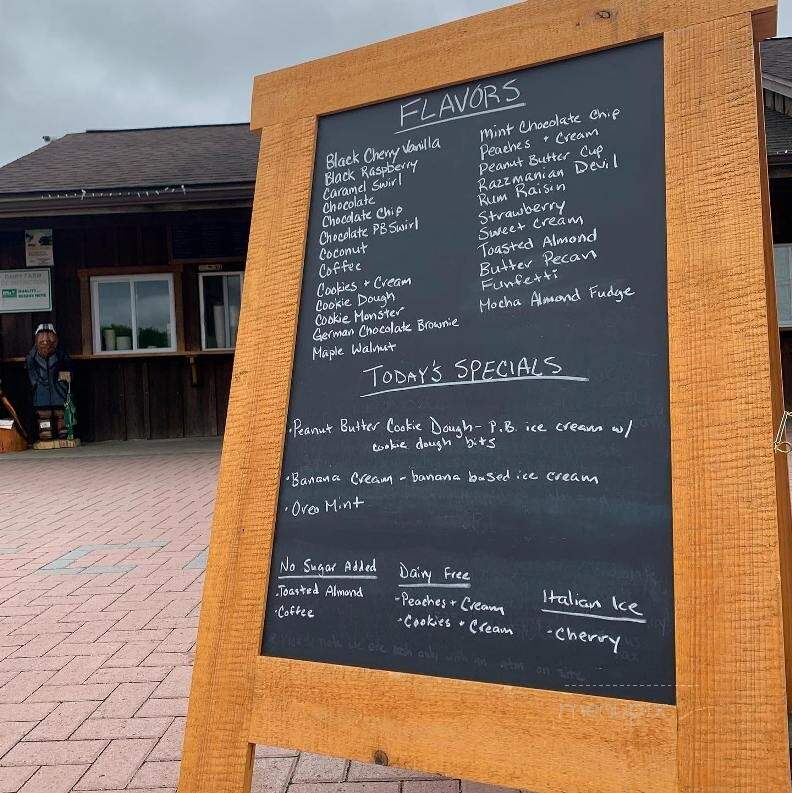 FLAVORS
Black Cherry Vanilla
Black Raspberry
Caramel Swirl
Chocolate
Chocolate Chip
Chocolate PB Swirl
Coconut
Coffee
Cookies + Cream
Cookie Dough
Cookie Monster
German Chocolate Brownie
Maple Walnut
Mint Chocolate Chip
Peaches + Cream
Peanut Butter Cup
Razzmanian Devil
Rum Raisin
Strawberry
Sweet Cream
Toasted Almond
Butter Pecan
Funfetti
Mocha Almond Fudge
TODAY'S SPECIALS
• Peanut Butter Cookie Dough - P.B. ice cream w/
cookie dough bits
• Banana Cream - banana based ice cream
• Oreo Mint
No Sugar Added
• Toasted Almond
• Coffee
Dairy Free
- Peaches + Cream
- Cookies + Cream
Italian Ice
- Cherry
DAIRY FARM
menupix